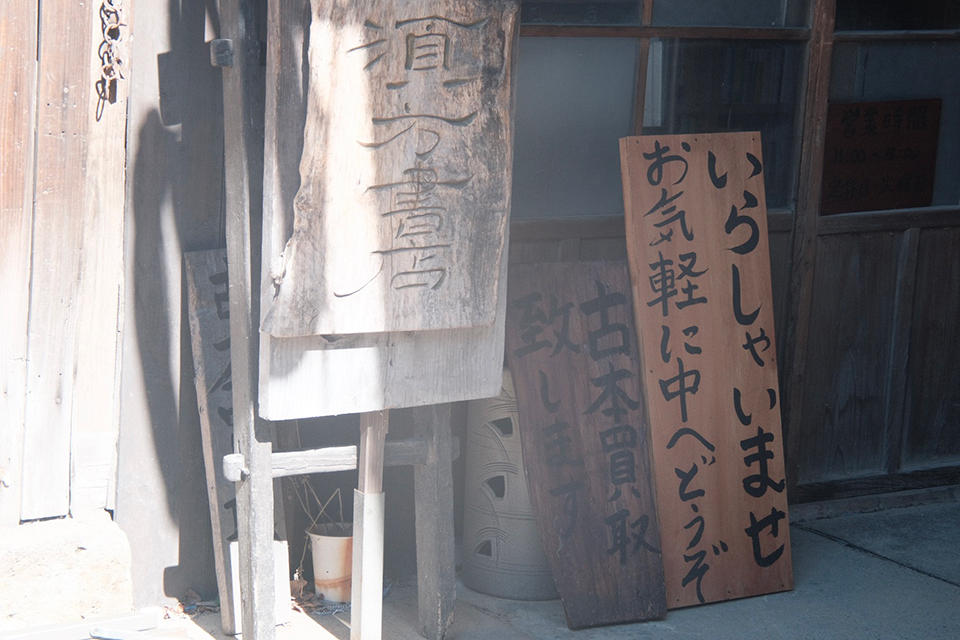 須方書店
いらしゃいませ
お気軽に中へどうぞ
古本買取
致します
営業時間